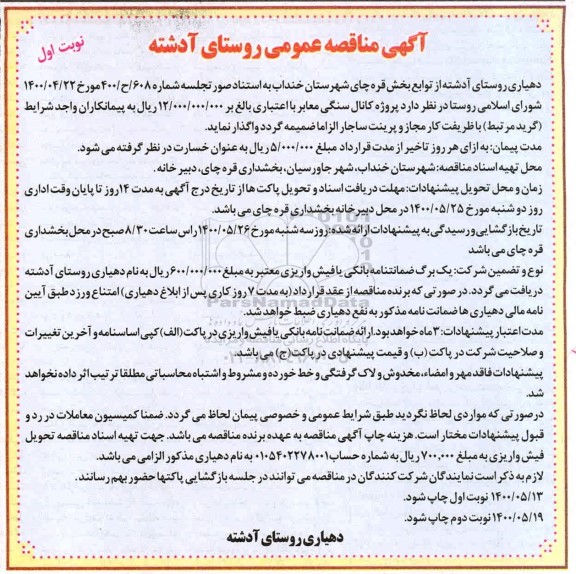 آگهی مناقصه عمومی روستای آدشته
نوبت اول
دهیاری روستای آدشته از توابع بخش قره چای شهرستان خنداب به استناد صورتجلسه شماره ۶۰۸/ح/۴۰۰ مورخ ۱۴۰۰/۰۴/۲۲
شورای اسلامی روستا در نظر دارد پروژه کانال سنگی معابر با اعتباری بالغ بر ۱۲/۰۰۰/۰۰۰/۰۰۰ ریال به پیمانکاران واجد شرایط
(گرید مرتبط) با ظریفت کار مجاز و پرینت ساجار الزاما ضمیمه گردد واگذار نماید.
مدت پیمان: به ازای هر روز تاخیر از مدت قرارداد مبلغ ۵/۰۰۰/۰۰۰ ریال به عنوان خسارت در نظر گرفته می شود.
محل تهیه اسناد مناقصه: شهرستان خنداب، شهر جاورسیان، بخشداری قره چای، دبیر خانه.
زمان و محل تحویل پیشنهادات: مهلت دریافت اسناد و تحویل پاکت ها از تاریخ درج آگهی به مدت ۱۴ روز تا پایان وقت اداری
روز دو شنبه مورخ ۱۴۰۰/۰۵/۲۵ در محل دبیر خانه بخشداری قره چای می باشد.
تاریخ بازگشایی و رسیدگی به پیشنهادات ارائه شده: روز سه شنبه مورخ ۱۴۰۰/۰۵/۲۶ راس ساعت ۸/۳۰ صبح در محل بخشداری
قره چای می باشد
نوع و تضمین شرکت: یک برگ ضمانتنامه بانکی یا فیش واریزی معتبر به مبلغ ۶۰۰/۰۰۰/۰۰۰ ریال به نام دهیاری روستای آدشته
دریافت می گردد. در صورتی که برنده مناقصه از عقد قرارداد (به مدت ۷ روز کاری پس از ابلاغ دهیاری) امتناع ورزد طبق آیین
نامه مالی دهیاری ها ضمانت نامه مذکور به نفع دهیاری ضبط خواهد شد.
مدت اعتبار پیشنهادات: ۳ ماه خواهد بود. ارائه ضمانت نامه بانکی یا فیش واریزی در پاکت (الف) کپی اساسنامه و آخرین تغییرات
و صلاحیت شرکت در پاکت (ب) و قیمت پیشنهادی در پاکت (ج) می باشد.
پیشنهادات فاقد مهر و امضاء، مخدوش و لاک گرفتگی و خط خورده و مشروط و اشتباه محاسباتی مطلقا ترتیب اثر داده نخواهد
شد.
در صورتی که مواردی لحاظ نگردید طبق شرایط عمومی و خصوصی پیمان لحاظ می گردد. ضمنا کمیسیون معاملات در رد و
قبول پیشنهادات مختار است. هزینه چاپ آگهی مناقصه به عهده برنده مناقصه می باشد. جهت تهیه اسناد مناقصه تحویل
فیش واریزی به مبلغ ۷۰۰,۰۰۰ ریال به شماره حساب ۰۱۰۵۴۰۲۲۷۸۰۰۱ به نام دهیاری مذکور الزامی می باشد.
لازم به ذکر است نمایندگان شرکت کنندگان در مناقصه می توانند در جلسه بازگشایی پاکتها حضور بهم رسانند.
۱۴۰۰/۰۵/۱۳ نوبت اول چاپ شود.
۱۴۰۰/۰۵/۱۹ نوبت دوم چاپ شود.
دهیاری روستای آدشته
ParsNamadData